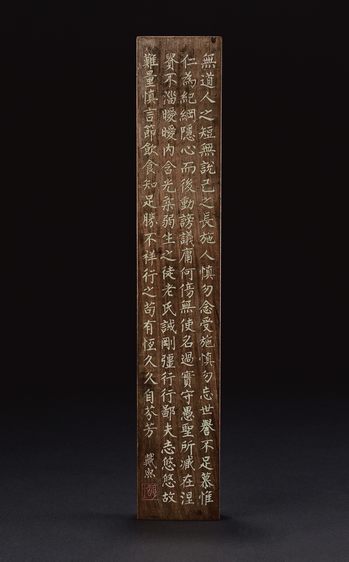 無道人之短無說己之長施人慎勿念受施慎勿忘世譽不足慕惟
仁為紀綱隱心而後動謗議庸何傷無使名過實守愚聖所臧在涅
貴不淄曖曖內含光柔弱生之徒老氏誡剛彊行行鄙夫志悠悠故
難量慎言節飲食知足勝不祥行之苟有恆久久自芬芳 戴熙